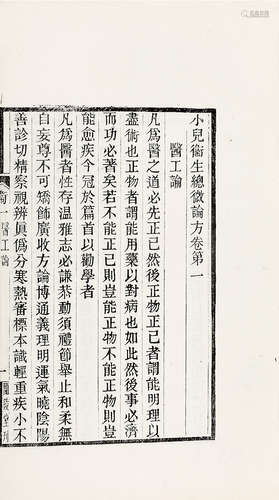 小兒衛生總微論方卷第一
醫工論
凡為醫之道必先正己然後正物正己者謂能明理以
盡術也正物者謂能用藥以對病也如此然後事必濟
而功必著矣若不能正己則豈能正物不能正物則豈
能愈疾今冠於篇首以勸學者
凡為醫者性存溫雅志必謙恭動須禮節舉止和柔無
自妄尊不可矯飾廣收方論博通義理明運氣曉陰陽
善診切精察視辨真偽分寒熱審標本識輕重疾小不
卷一 醫工論
一